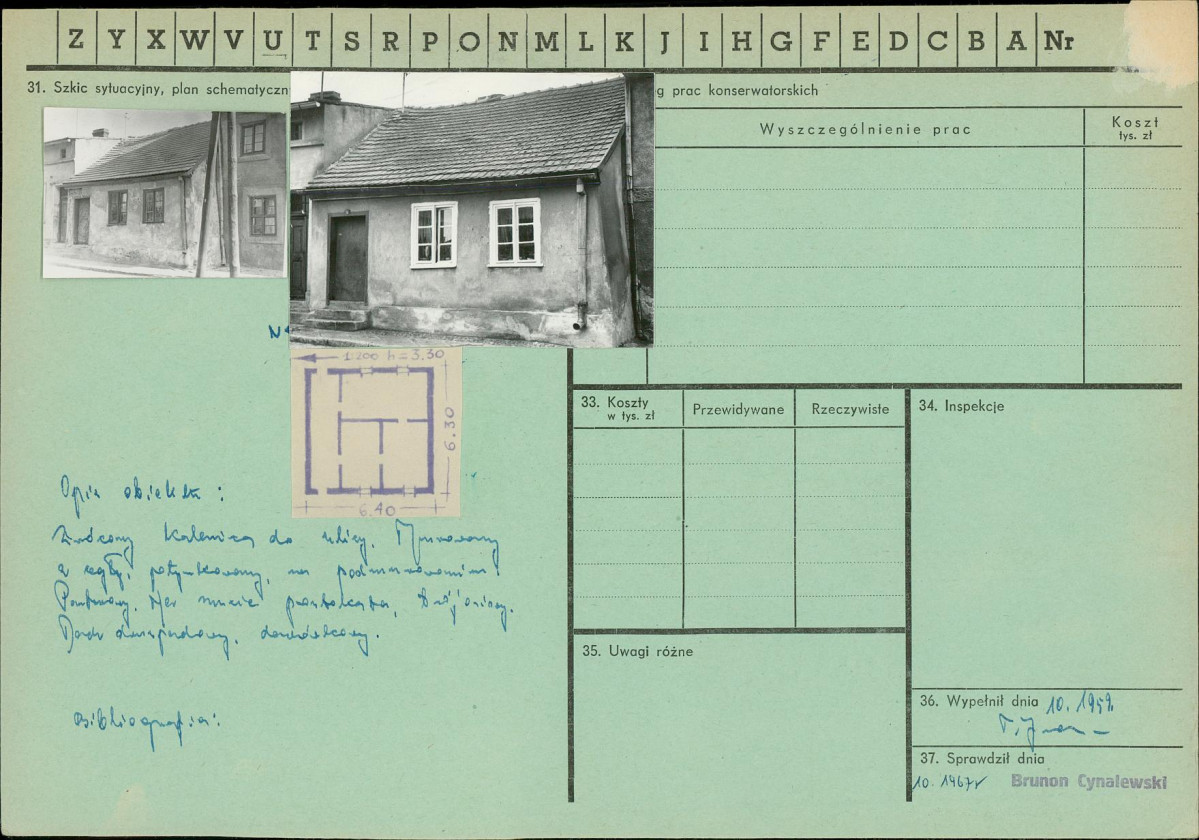 Z Y X W V U T S R P O N M L K J I H G F E D C B A Nr
31. Szkic sytuacyjny, plan schematyczn
g prac konserwatorskich
Wyszczególnienie prac
Koszt
tys. zł
1:200 h=3.30
6.30
6.40
Opis obiektu:
Zwrócony kalenicą do ulicy. Murowany
z cegły, potynkowany, na podmurowaniu.
Parterowy. Na rzucie prostokąta, trójosiowy.
Dach dwuspadowy, dachówkowy.
Bibliografia:
33. Koszty
w tys. zł
Przewidywane
Rzeczywiste
34. Inspekcje
35. Uwagi różne
36. Wypełnił dnia 10.1959.
37. Sprawdził dnia
10.1967r Brunon Cynalewski